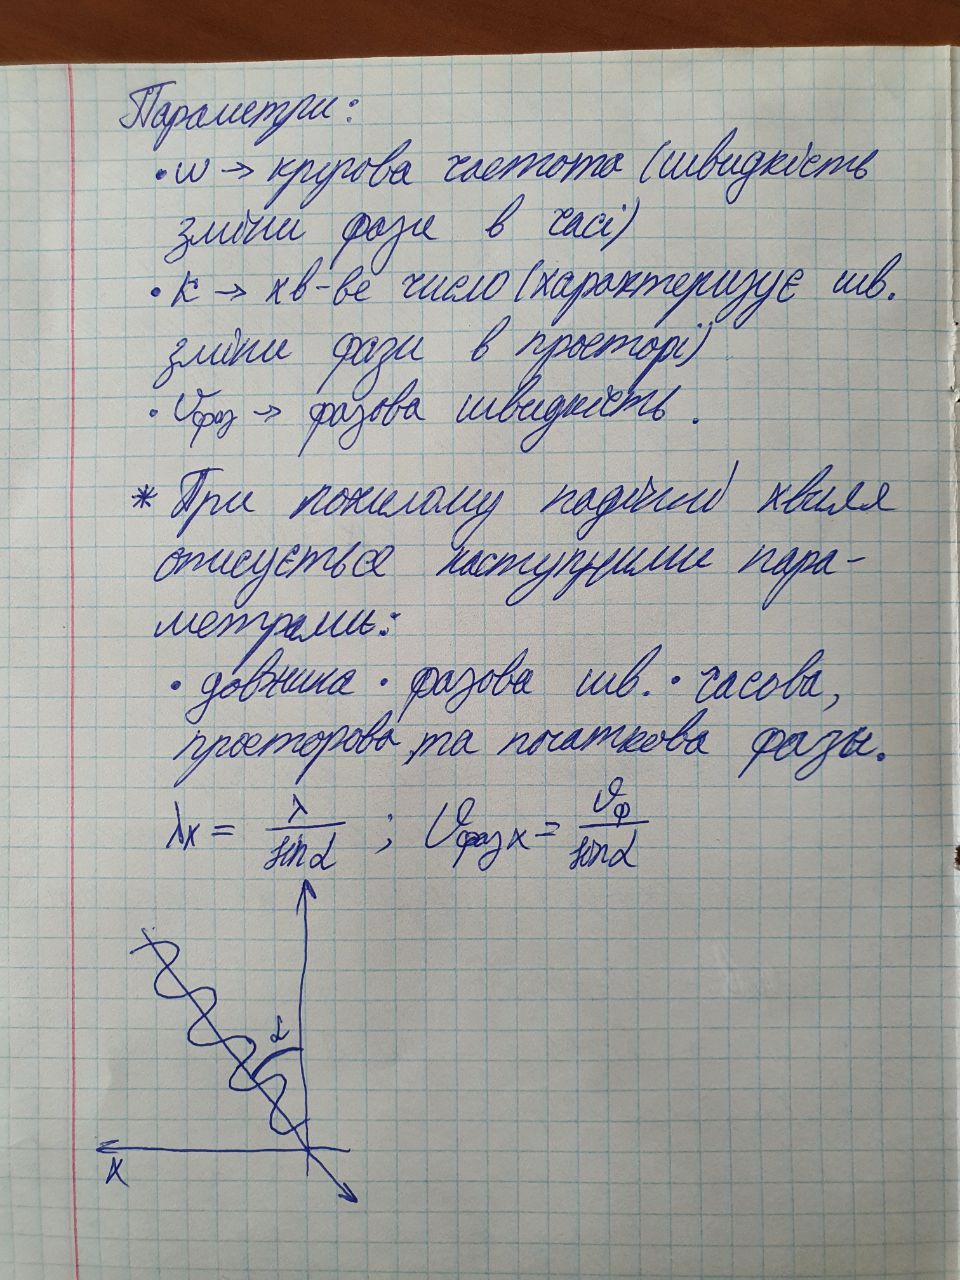 Параметри:
• ω → кругова частота (швидкість
зміни фази в часі)
• k → хв-ве число (характеризує шв.
зміни фази в просторі)
• υфаз → фазова швидкість.
* При похилому падінні хвиля
описується наступними пара-
метрами:
• довжина • фазова шв. • часова,
просторова, та початкова фазы.
λx = λ/sinα ; υфаз x = υф/sinα
α
x